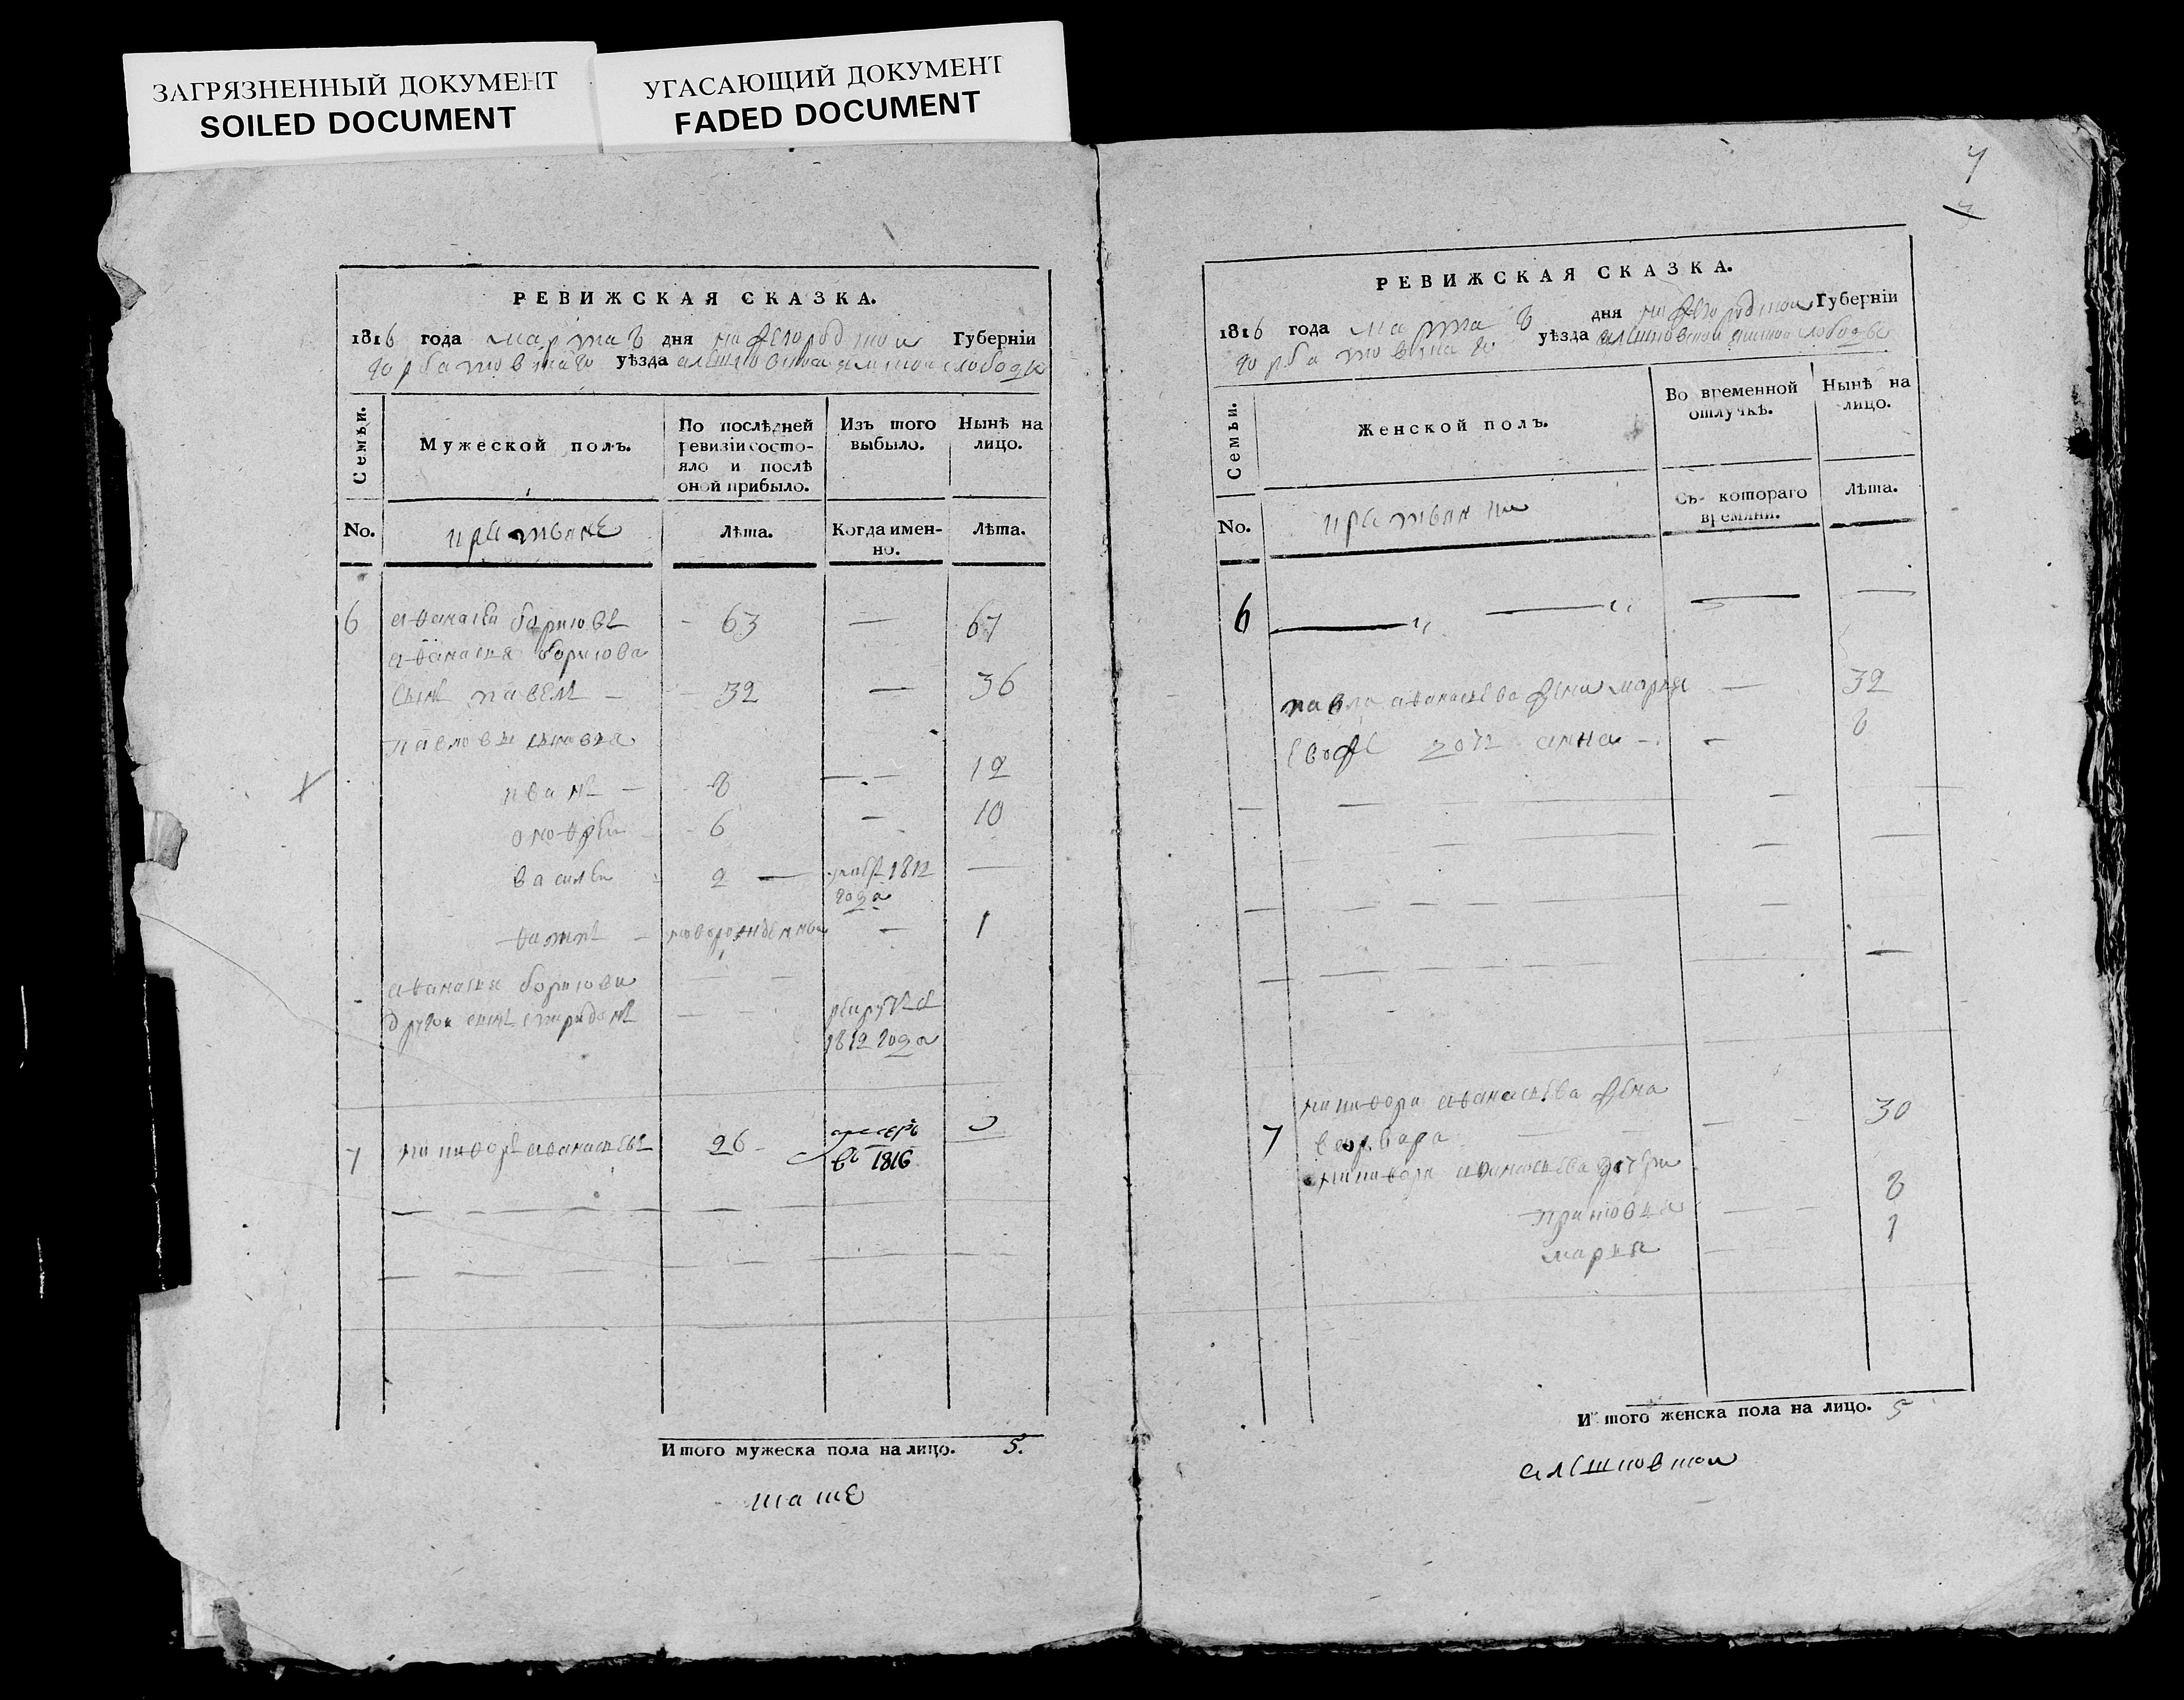 ЗАГРЯЗНЕННЫЙ ДОКУМЕНТ
SOILED DOCUMENT
УГАСАЮЩИЙ ДОКУМЕНТ
FADED DOCUMENT
РЕВИЖСКАЯ СКАЗКА.
1816 года марта 8 дня нижегородской Губерніи
горбатовскаго уѣзда слободы
Семьи.
Мужеской полъ.
По послѣдней ревизіи состо-
яло и послѣ
оной прибыло.
Изъ того
выбыло.
Нынѣ на
лицо.
No.
крестьяне
Лѣта.
Когда имен-
но.
Лѣта.
6 аѳанасеи борисовъ - 63 — 67
аѳанасья борисова
сынъ павелъ — 32 — 36
павловы сыновья
иванъ — 8 — 12
онофреи 6 — 10
василеи 2 — 1812 —
года
новорожденны — 1
аѳанасья борисова
другои сынъ спиридонъ
рекруты
1812 года
7 никифоръ аѳанасьевъ 26 -
въ 1816
Итого мужеска пола на лицо. 5.
4
РЕВИЖСКАЯ СКАЗКА.
1816 года марта 8 дня нижегородской Губерніи
горбатовскаго уѣзда слободы
Семьи.
Женской полъ.
Во временной
отлучкѣ.
Нынѣ на
лицо.
No.
крестьянки
Съ котораго
времяни.
Лѣта.
6
павла аѳанасьева жена марья — 32
евоже дочь анна — 8
никифора аѳанасьева жена
7 варвара 30
никифора аѳанасьева дочери
8
марья 1
Итого женска пола на лицо. 5